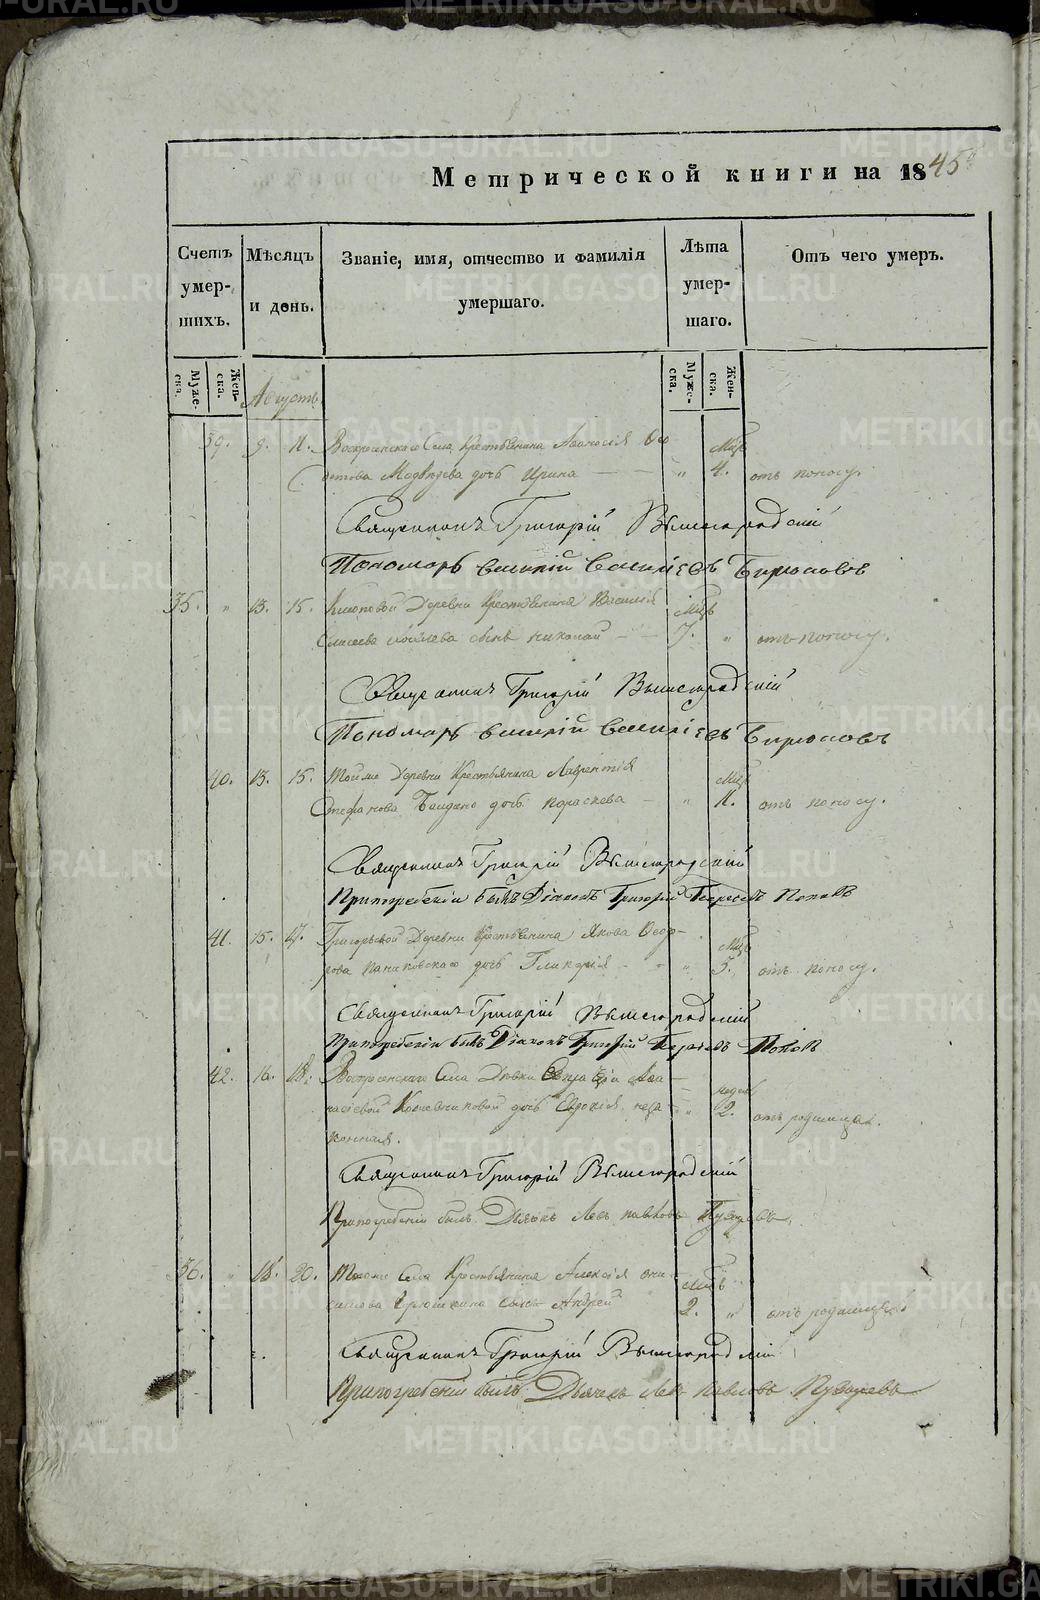 Метрической книги на 1845
Счетъ умер-шихъ.
Мѣсяцъ и день.
Званіе, имя, отчество и фамилія умершаго.
Лѣта умер-шаго.
Отъ чего умеръ.
Муже-ска.
Жен-ска.
Муже-ска.
Жен-ска.
Августъ
39. 9. 11. Воскресенскаго Села Крестьянина Афанасія Ѳе Мцъ
отова Медвѣдева дочь Ирина — — " 4. отъ поносу.
Священникъ Григорій Вышегородскій
Пономарь Василій Василіевъ Бирюковъ
35. " 13. 15. Деревни Крестьянина Василія Мцъ
Елисеева сынъ Николай — 7. " отъ поносу.
Священникъ Григорій Вышегородскій
Пономарь Василій Василіевъ Бирюковъ
40. 13. 15. Деревни Крестьянина Лаврентія Мцъ
Стефанова дочь Параскева — " 11. отъ поносу.
Священникъ Григорій Вышегородскій
При погребеніи былъ Діаконъ Григорій Поповъ
41. 15. 17. Григорьевой Деревни Крестьянина Якова Ѳеодо- Мцъ
рова дочь Гликерія — " 5. отъ поносу.
Священникъ Григорій Вышегородскій
При погребеніи былъ Діаконъ Григорій Поповъ
42. 16. 18. Воскресенскаго Села Дѣвки Афа- недѣль
насіевой дочь Евдокія неза- " 2. отъ родимца.
конная.
Священникъ Григорій Вышегородскій
При погребеніи былъ Дьячекъ Левъ Павловъ Пузыревъ
36. " 18. 20. Села Крестьянина Алексія Они- Мцъ
симова сынъ Андрей 2. " отъ родимца
Священникъ Григорій Вышегородскій
При погребеніи былъ Дьячекъ Левъ Павловъ Пузыревъ
METRIKI.GASO-URAL.RU